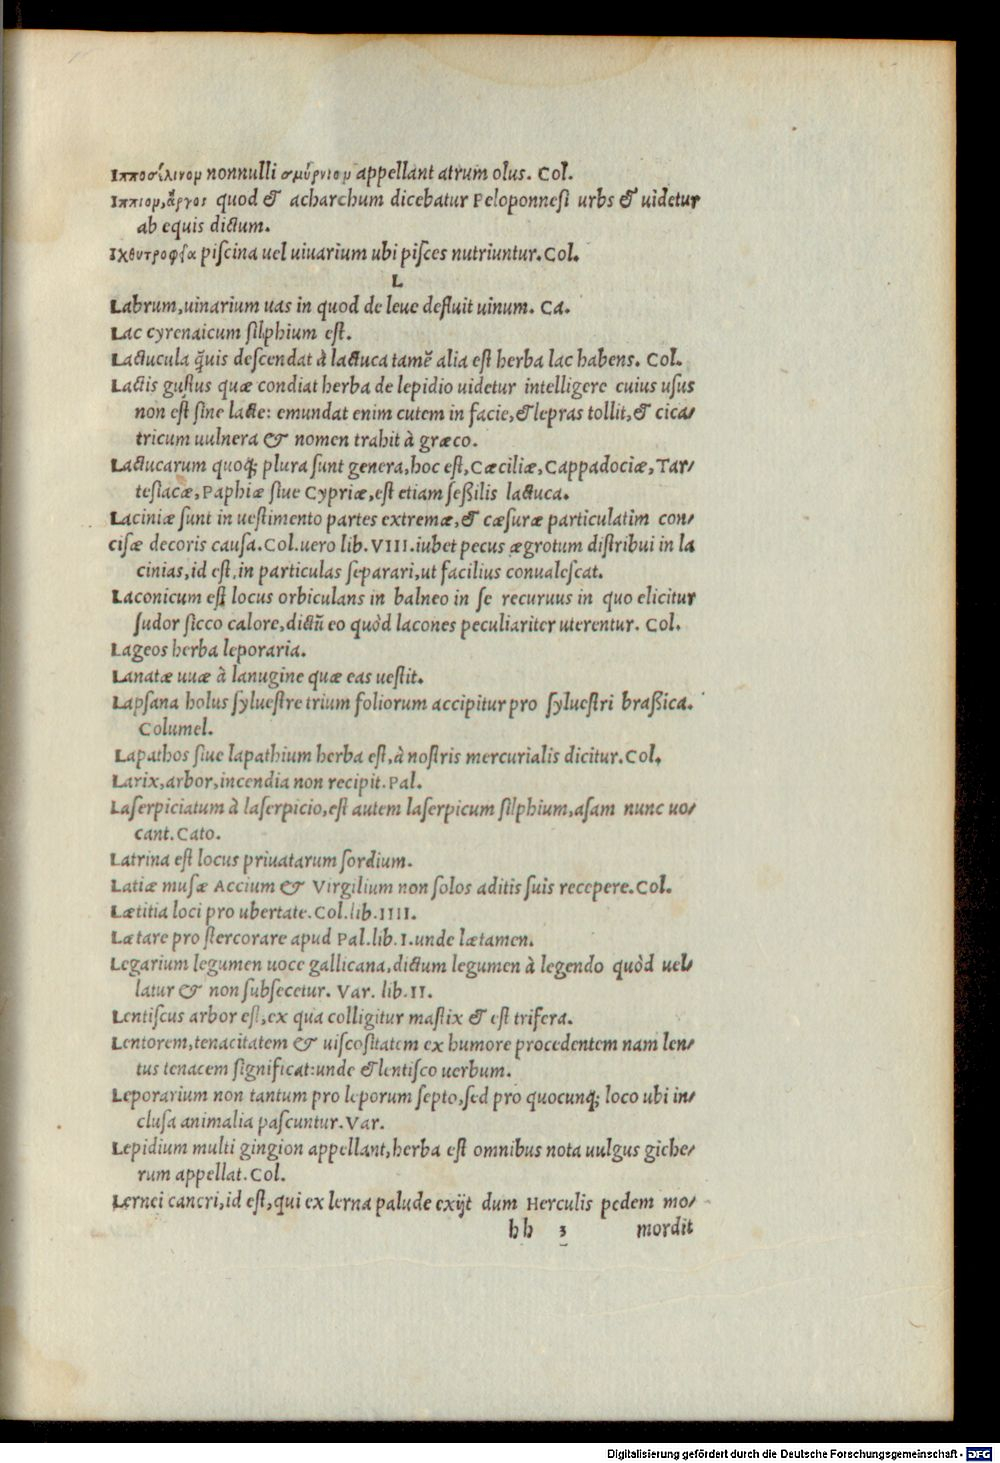 Ιπποσίλινομ nonnulli σμύρνιομ appellant atrum olus. Col.
Ιππιομ,ἄργος quod & acharchum dicebatur Peloponnesi urbs & uidetur
ab equis dictum.
Ιχθυτροφία piscina uel uiuarium ubi pisces nutriuntur.Col.
L
Labrum,uinarium uas in quod de leue defluit uinum. Ca.
Lac cyrenaicum silphium est.
Lactucula q̃uis descendat à lactuca tamẽ alia est herba lac habens. Col.
Lactis gustus quæ condiat herba de lepidio uidetur intelligere cuius usus
non est sine lacte: emundat enim cutem in facie,& lepras tollit,& cica/
tricum uulnera & nomen trahit à græco.
Lactucarum quoq; plura sunt genera,hoc est,Cæciliæ,Cappadociæ,Tar/
tesiacæ,Paphiæ siue Cypriæ,est etiam seßilis lactuca.
Laciniæ sunt in uestimento partes extremæ,& cæsuræ particulatim con/
cisæ decoris causa.Col.uero lib.VIII.iubet pecus ægrotum distribui in la
cinias,id est,in particulas separari,ut facilius conualescat.
Laconicum est locus orbiculans in balneo in se recuruus in quo elicitur
sudor sicco calore,dictũ eo quòd lacones peculiariter uterentur. Col.
Lageos herba leporaria.
Lanatæ uuæ à lanugine quæ eas uestit.
Lapsana holus syluestre trium foliorum accipitur pro syluestri braßica.
Columel.
Lapathos siue lapathium herba est,à nostris mercurialis dicitur.Col.
Larix,arbor,incendia non recipit.Pal.
Laserpiciatum à laserpicio,est autem laserpicum silphium,asam nunc uo/
cant.Cato.
Latrina est locus priuatarum sordium.
Latiæ musæ Accium & Virgilium non solos aditis suis recepere.Col.
Lætitia loci pro ubertate.Col.lib.IIII.
Lætare pro stercorare apud Pal.lib.I.unde lætamen.
Legarium legumen uoce gallicana,dictum legumen à legendo quòd uel/
latur & non subsecetur. Var. lib.II.
Lentiscus arbor est,ex qua colligitur mastix & est trifera.
Lentorem,tenacitatem & uiscositatem ex humore procedentem nam len/
tus tenacem significat:unde & lentisco uerbum.
Leporarium non tantum pro leporum septo,sed pro quocunq; loco ubi in/
clusa animalia pascuntur.Var.
Lepidium multi gingion appellant,herba est omnibus nota uulgus giche/
rum appellat.Col.
Lernei cancri,id est,qui ex lerna palude exijt dum Herculis pedem mo/
hh 3 mordit
Digitalisierung gefördert durch die Deutsche Forschungsgemeinschaft - DFG